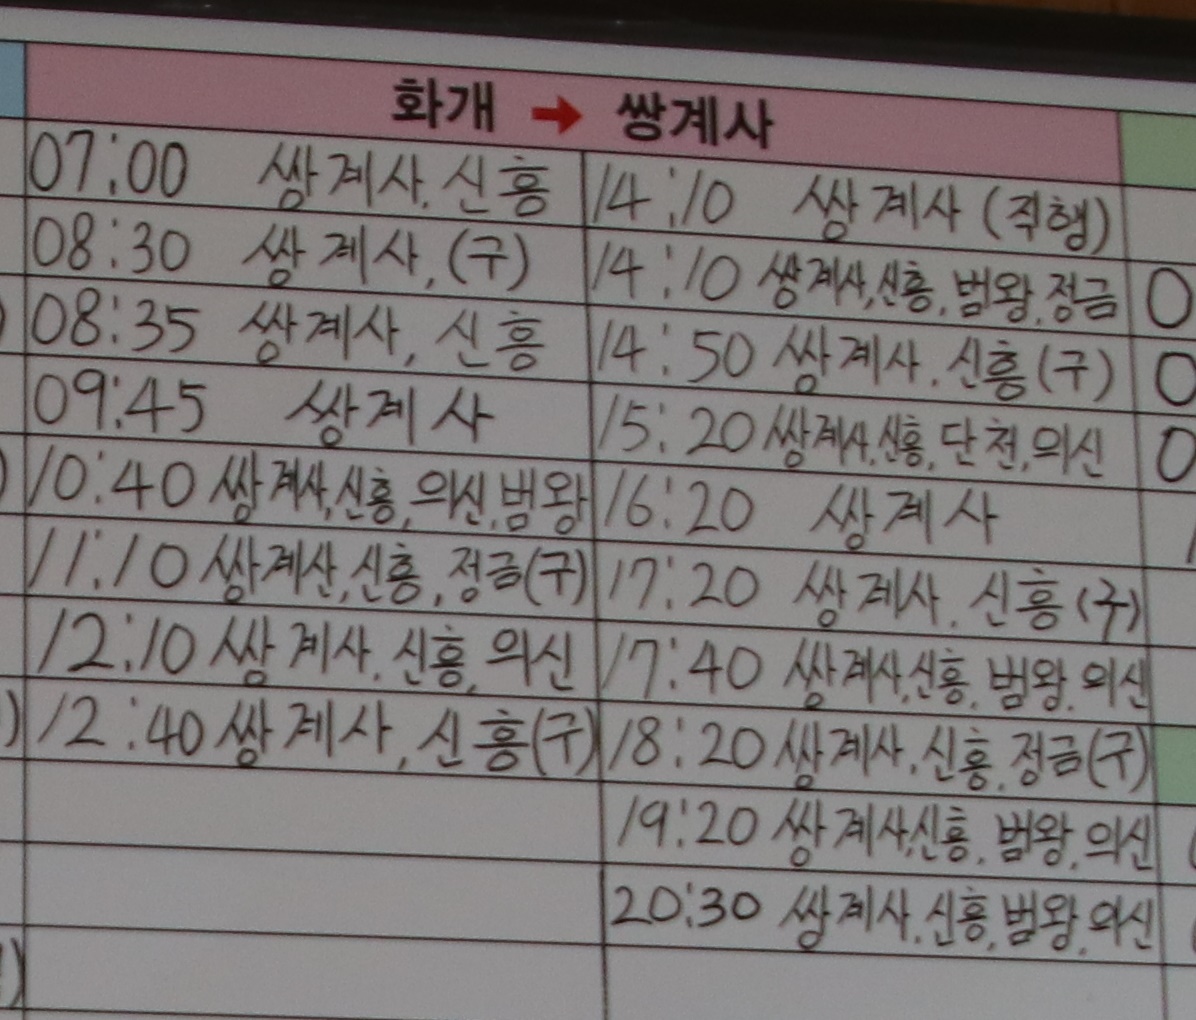 화개 → 쌍계사
07:00 쌍계사, 신흥
08:30 쌍계사, (구)
08:35 쌍계사, 신흥
09:45 쌍계사
10:40 쌍계사, 신흥, 의신, 범왕
11:10 쌍계산, 신흥, 정금(구)
12:10 쌍계사, 신흥, 의신
12:40 쌍계사, 신흥(구)
14:10 쌍계사 (직행)
14:10 쌍계사, 신흥, 범왕, 정금
14:50 쌍계사, 신흥(구)
15:20 쌍계사, 신흥, 단천, 의신
16:20 쌍계사
17:20 쌍계사, 신흥(구)
17:40 쌍계사, 신흥, 범왕, 의신
18:20 쌍계사, 신흥, 정금(구)
19:20 쌍계사, 신흥, 범왕, 의신
20:30 쌍계사, 신흥, 범왕, 의신